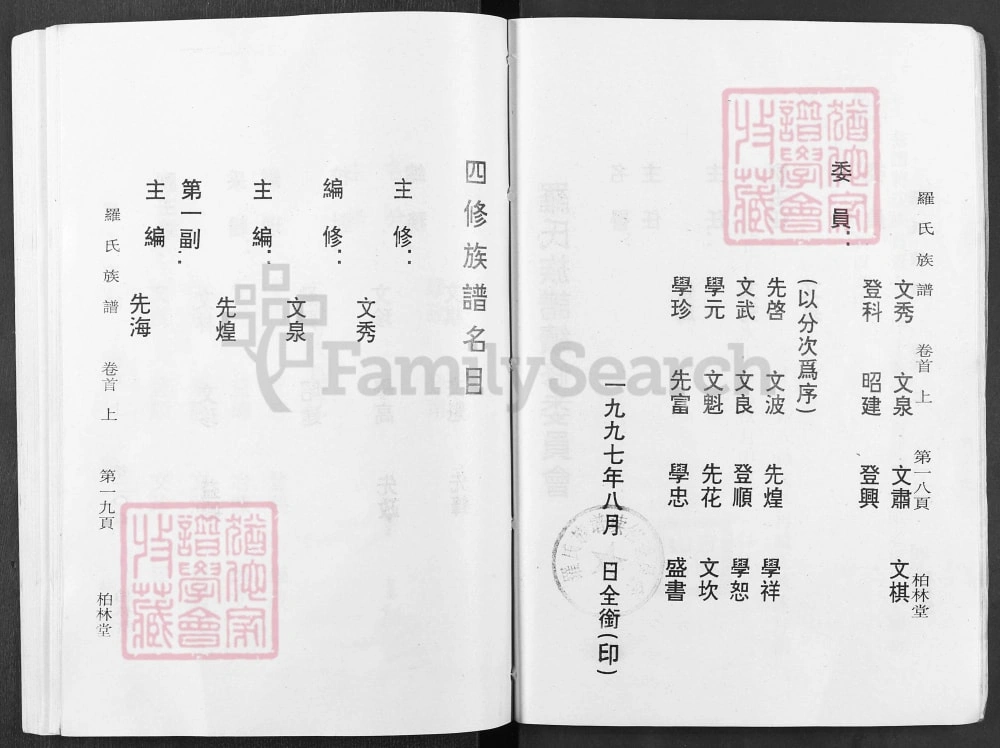 羅氏族譜 卷首上 第一八頁 柏林堂
文秀 文泉 文肅 文棋
登科 昭建 登興
委員：
(以分次爲序)
先啓 文波 先煌 學祥
文武 文良 登順 學恕
學元 文魁 先花 文坎
學珍 先富 學忠 盛書
一九九七年八月 日全銜(印)
四修族譜名目
主修：
文秀
編修：
文泉
主編：
先煌
第一副：
主編
先海
羅氏族譜 卷首上 第一九頁 柏林堂
FamilySearch